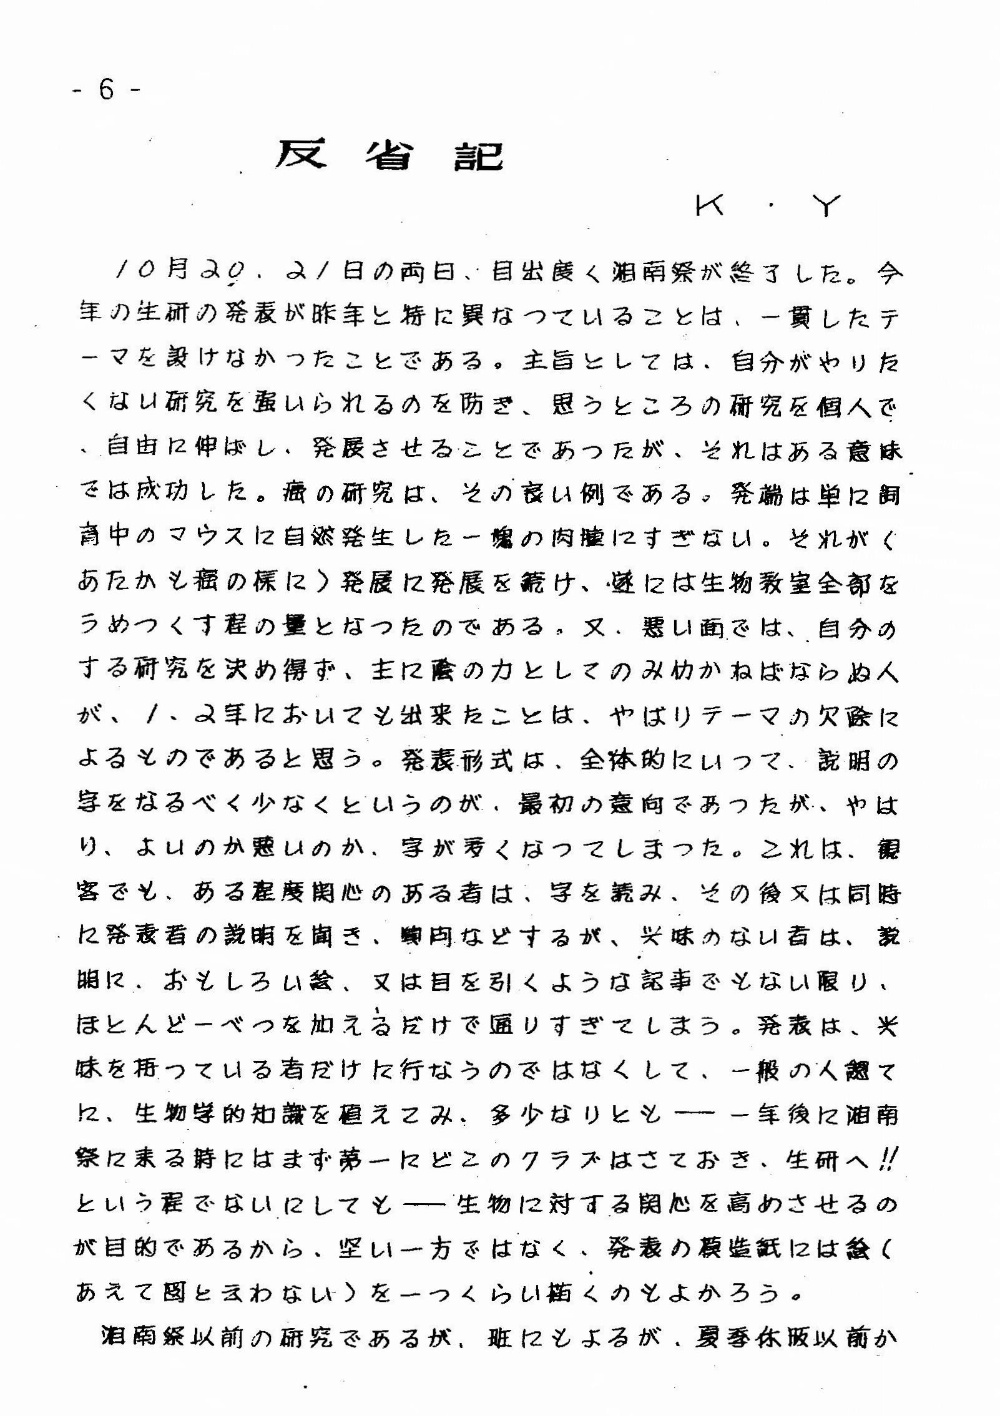 - 6 -
反省記
K・Y
10月20、21日の両日、目出度く湘南祭が終了した。今
年の生研の発表が昨年と特に異なつていることは、一貫したテ
ーマを設けなかったことである。主旨としては、自分がやりた
くない研究を強いられるのを防ぎ、思うところの研究を個人で
、自由に伸ばし、発展させることであつたが、それはある意味
では成功した。癌の研究は、その良い例である。発端は単に飼
育中のマウスに自然発生した一塊の肉腫にすぎない。それが（
あたかも癌の様に）発展に発展を続け、遂には生物教室全部を
うめつくす程の量となつたのである。又、悪い面では、自分の
する研究を決め得ず、主に陰の力としてのみ働かねばならぬ人
が、1、2年においても出来たことは、やはりテーマの欠陥に
よるものであると思う。発表形式は、全体的にいつて、説明の
字をなるべく少なくというのが、最初の意向であつたが、やは
り、よいのか悪いのか、字が多くなってしまった。これは、観
客でも、ある程度関心のある者は、字を読み、その後又は同時
に発表者の説明を聞き、質問などするが、興味のない者は、説
明に、おもしろい絵、又は目を引くような記事でもない限り、
ほとんど一べつを加えるだけで通りすぎてしまう。発表は、興
味を持っている者だけに行なうのではなくして、一般の人総て
に、生物学的知識を植えてみ、多少なりとも――一年後に湘南
祭に来る時にはまず第一にどこのクラスはさておき、生研へ!!
という程でないにしても――生物に対する関心を高めさせるの
が目的であるから、堅い一方ではなく、発表の模造紙には絵（
あえて図と云わない）を一つくらい描くのもよかろう。
湘南祭以前の研究であるが、班にもよるが、夏季休暇以前か